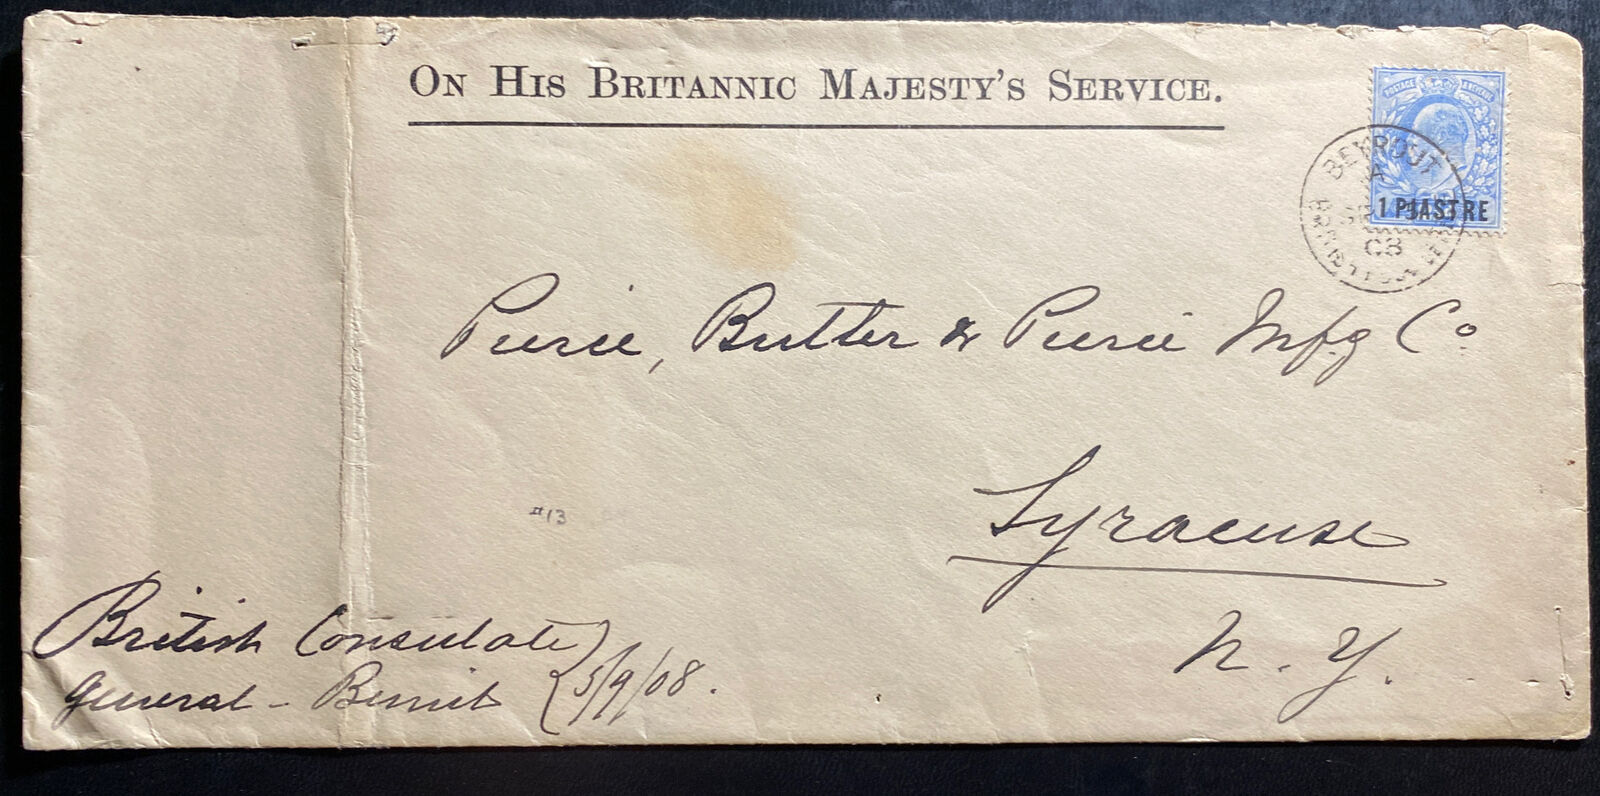 On His Britannic Majesty's Service.
POSTAGE & REVENUE
1 PIASTRE
BEYROUT
A
08
BRITISH POST OFFICE
Pierce, Butler & Pierce Mfg Co
Syracuse
N. Y.
#13
British Consulate
General - Beirut 5/9/08.